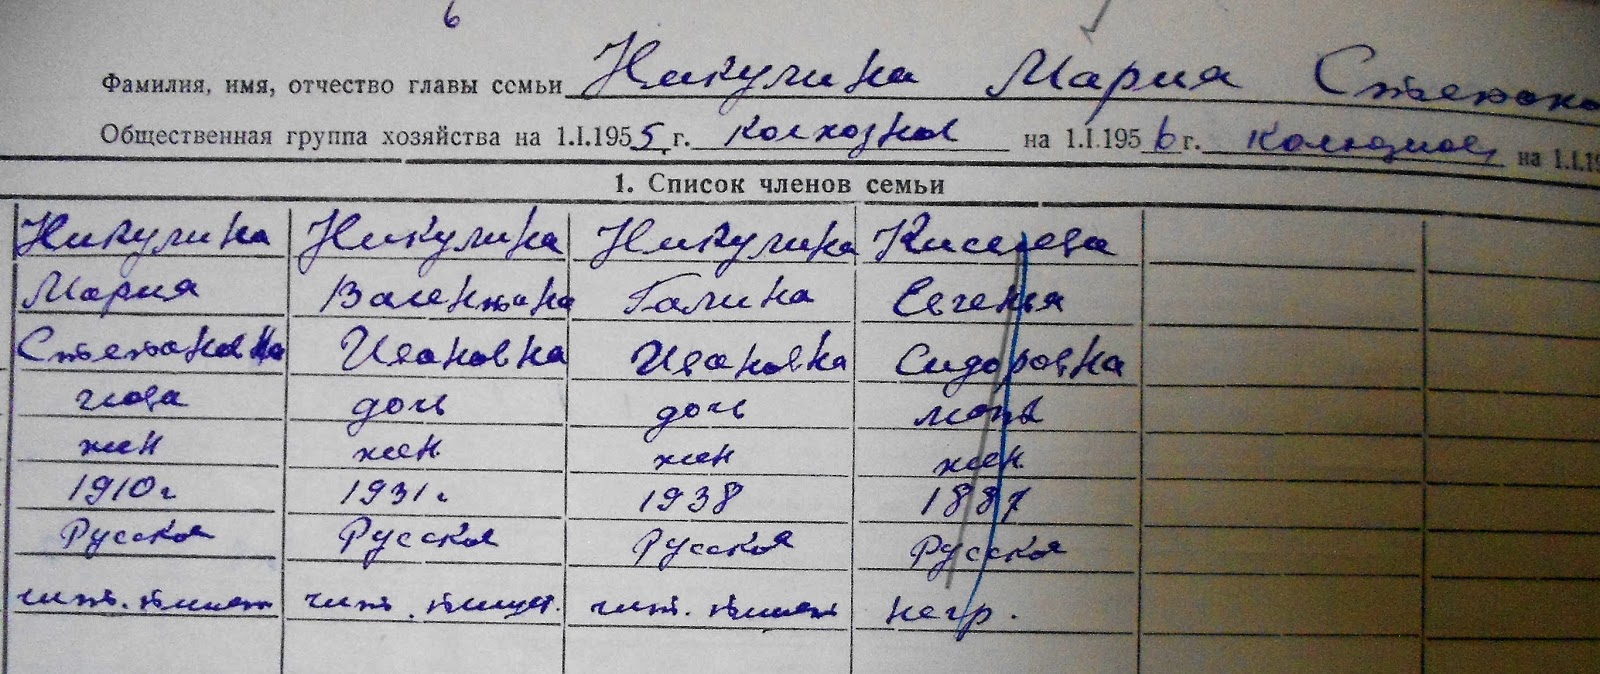 6
Фамилия, имя, отчество главы семьи Никулина Мария Степано
Общественная группа хозяйства на 1.I.1955 г. колхозное на 1.I.1956 г. колхозное на 1.I.19
1. Список членов семьи
Никулина Никулина Никулина Киселева
Мария Валентина Галина Евгения
Степановна Ивановна Ивановна Сидоровна
глава дочь дочь мать
жен жен жен жен.
1910г 1931г 1938 1887
Русская Русская Русская Русская
чит. пишет чит. пишет. чит. пишет негр.